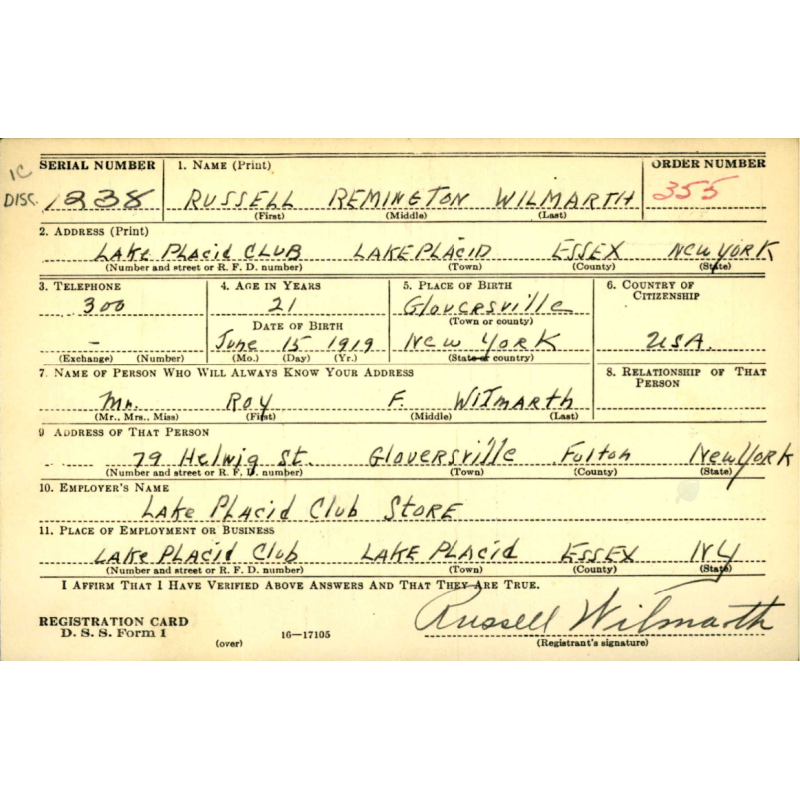 1C
DISC.
SERIAL NUMBER 1. NAME (Print) ORDER NUMBER
1238 RUSSELL REMINGTON WILMARTH 355
(First) (Middle) (Last)
2. ADDRESS (Print)
LAKE PLACID CLUB LAKE PLACID ESSEX NEW YORK
(Number and street or R. F. D. number) (Town) (County) (State)
3. TELEPHONE 4. AGE IN YEARS 5. PLACE OF BIRTH 6. COUNTRY OF CITIZENSHIP
300 21 Gloversville
(Town or county)
DATE OF BIRTH
- June 15 1919 NEW YORK USA.
(Exchange) (Number) (Mo.) (Day) (Yr.) (State or country)
7. NAME OF PERSON WHO WILL ALWAYS KNOW YOUR ADDRESS 8. RELATIONSHIP OF THAT PERSON
Mr. Roy F. Wilmarth
(Mr., Mrs., Miss) (First) (Middle) (Last)
9 ADDRESS OF THAT PERSON
79 Helwig St. Gloversville Fulton New York
(Number and street or R. F. D. number) (Town) (County) (State)
10. EMPLOYER'S NAME
Lake Placid Club Store
11. PLACE OF EMPLOYMENT OR BUSINESS
LAKE PLACID Club LAKE PLACID ESSEX NY
(Number and street or R. F. D. number) (Town) (County) (State)
I AFFIRM THAT I HAVE VERIFIED ABOVE ANSWERS AND THAT THEY ARE TRUE.
REGISTRATION CARD Russell Wilmarth
D. S. S. Form 1 16—17105
(over) (Registrant's signature)